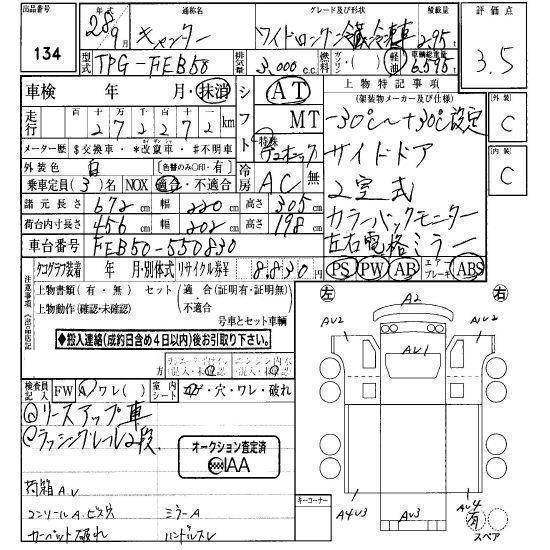 出品番号 年式 通称名 グレード及び形状 積載量 評価点
134 28年9月 キャンター ワイドロング 冷蔵冷凍車 2.95t 3.5
型式 TPG-FEB50 排気量 3,000c.c. 燃料 ガソリン・( )・軽油 車輌総重量 6,595t
車検 年 月・抹消 シフト AT 上物特記事項
(架装物メーカー及び仕様)
走行 十 万 千 百 十 27227?km MT -30℃~+30℃設定 外装 C
メーター歴 $交換車・*改竄車・#不明車 特殊 デュオニック サイドドア
外装色 白 [色替のみ〇印・有] 冷房 AC 無 2室式 内装 C
乗車定員(3)名 NOX 適合・不適合
諸元長さ 672cm 幅 220cm 高さ 305cm カラーバックモニター
荷台内寸長さ 456cm 幅 202cm 高さ 198cm 左右電格ミラー
車台番号 FEB50-550830 PS PW AB エアーブレーキ ABS
タコグラフ装着 年 月・別体式 リサイクル券¥ 8,830円
注意事項(出品店記入)
上物書類(有・無) セット(適合(証明有・証明無)・不適合)
上物動作(確認・未確認) 号車とセット車輌
◆搬入連絡(成約日含め4日以内)後お引取り下さい。◆
検査員記入 FW A ワレ( ) 室内シート コゲ・穴・ワレ・破れ
リースアップ車
ラッシングレール2段
オークション査定済
IAA
荷箱AV
コンソールA・ビス穴 ミラーA
カーペット破れ ハンドルスレ
キーコーナー
左 右
A2
AV2 AV2
AV1
A4V3 AV3 AV4
有
スペア